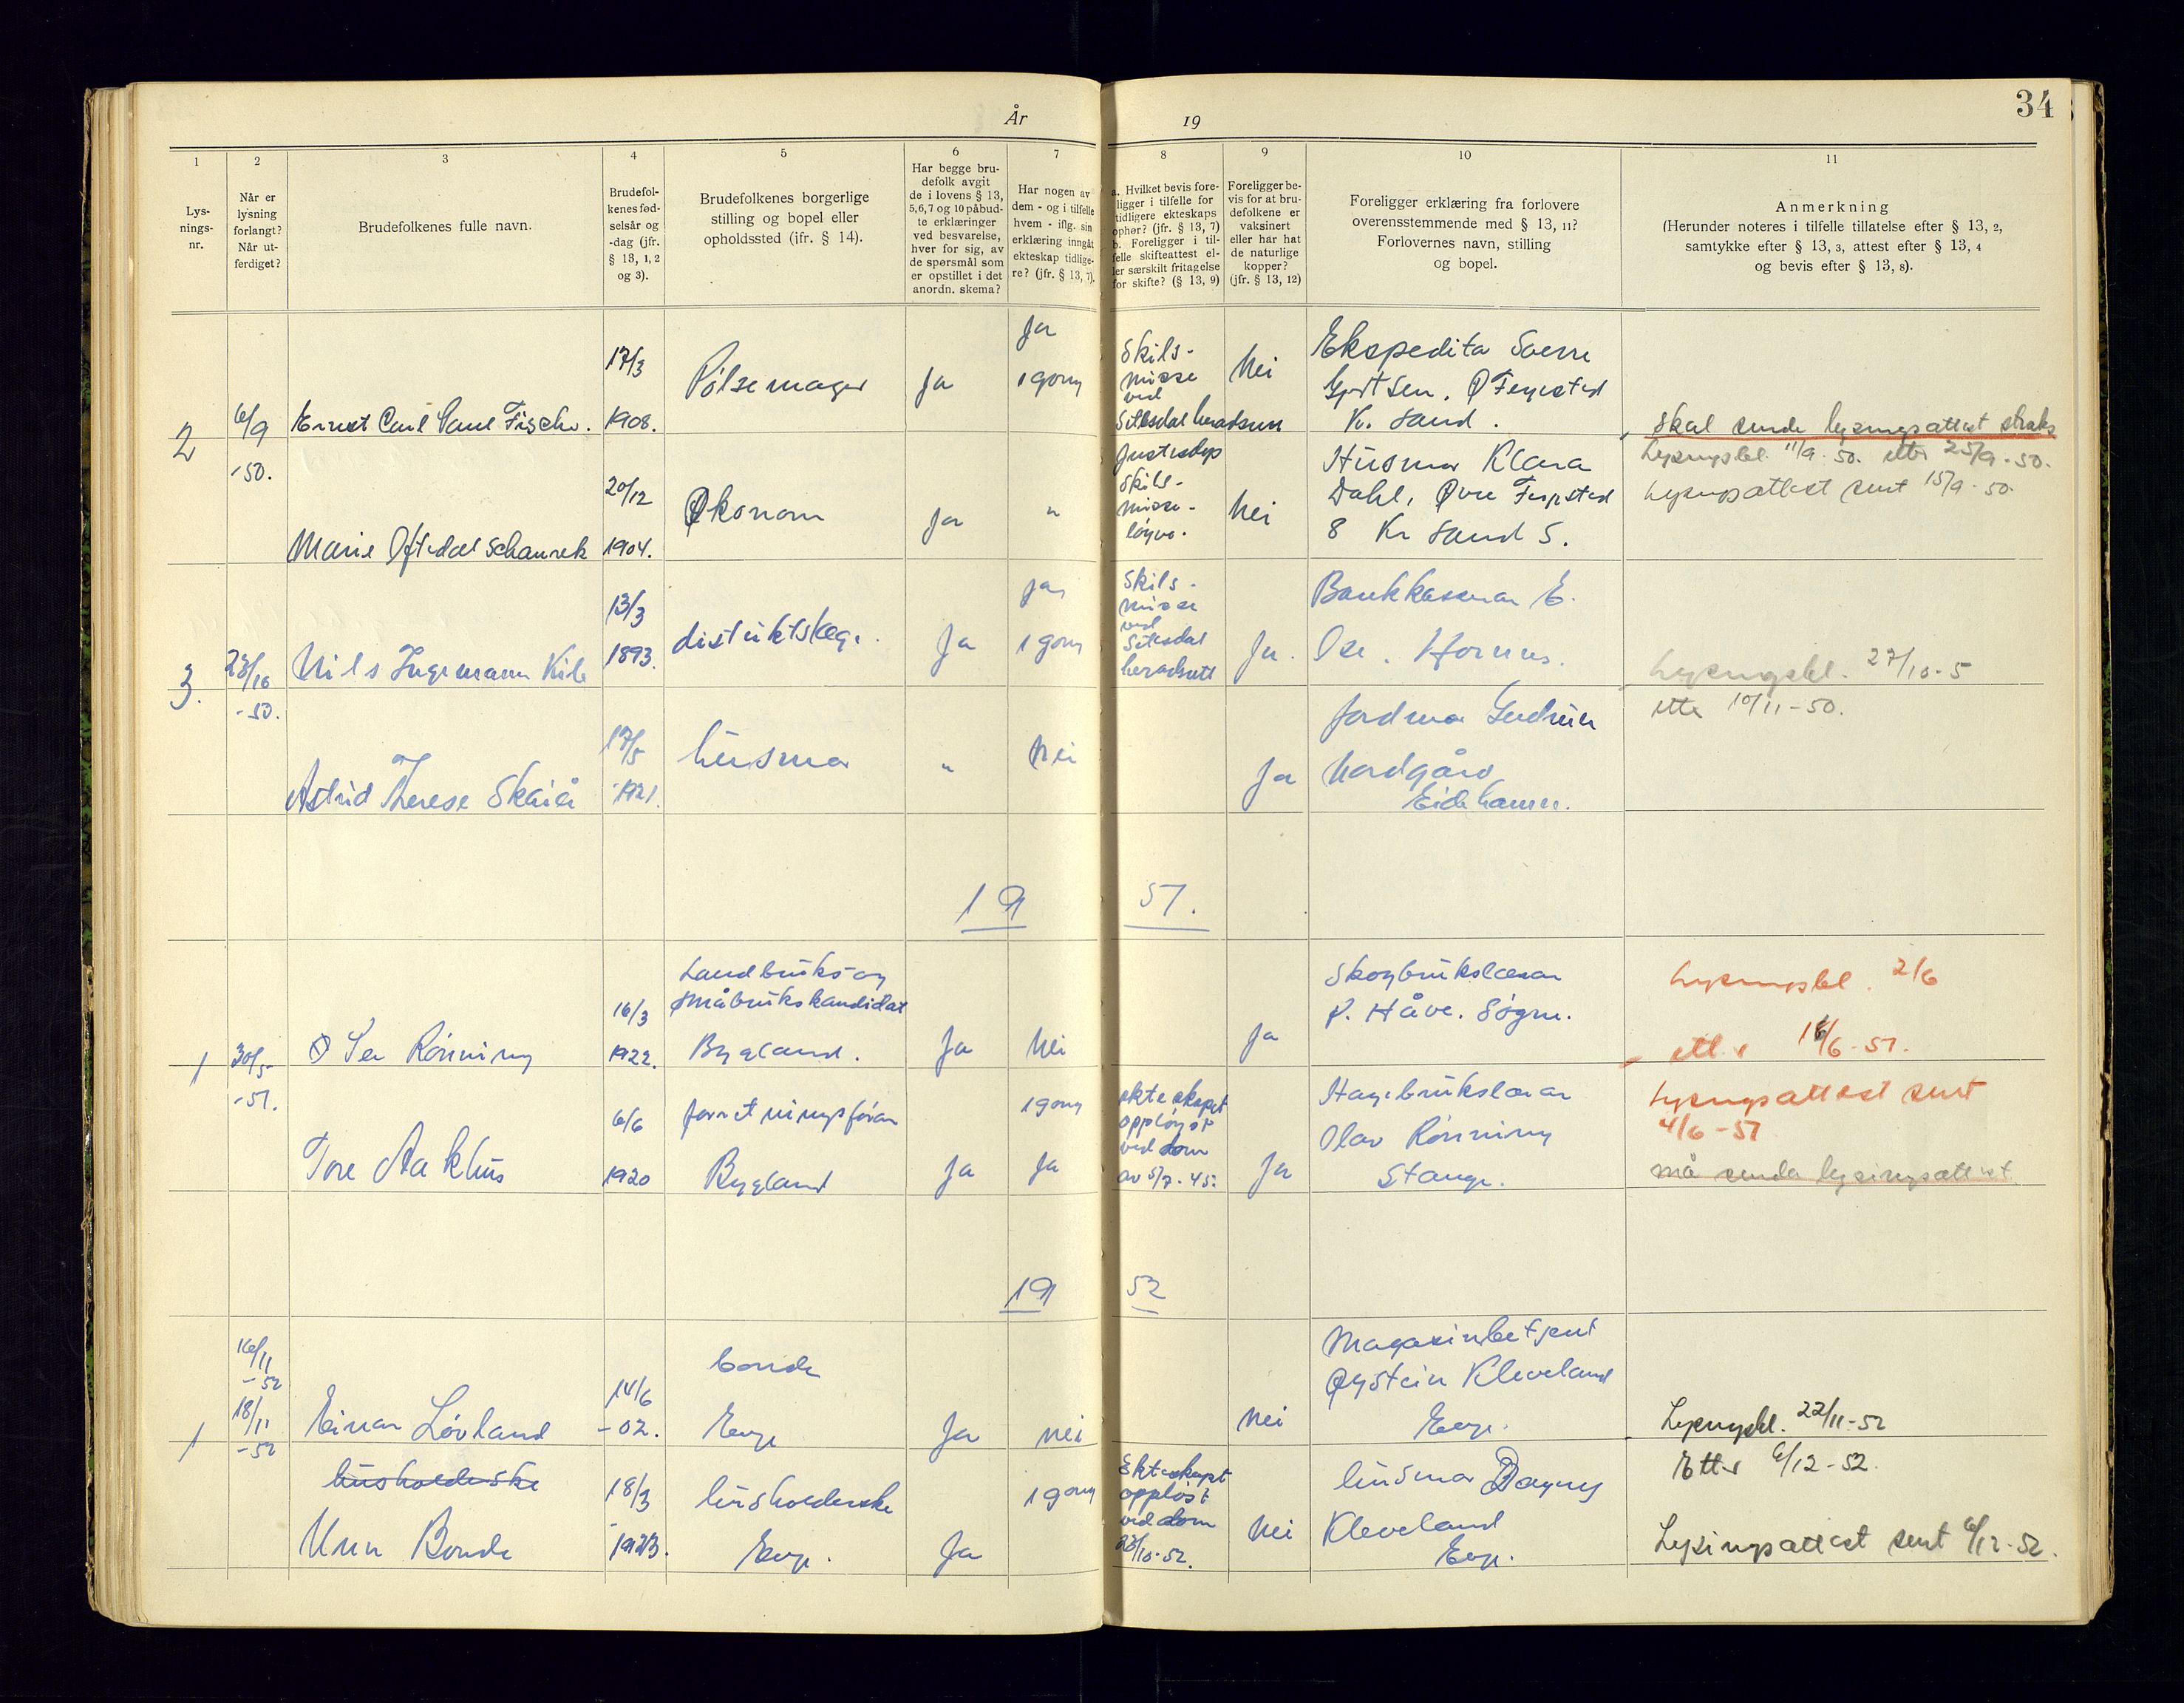 År 19
34
1
Lys-
nings-
nr.
2
Når er
lysning
forlangt?
Når ut-
ferdiget?
3
Brudefolkenes fulle navn.
4
Brudefol-
kenes fød-
selsår og
-dag (jfr.
§ 13, 1, 2
og 3).
5
Brudefolkenes borgerlige
stilling og bopel eller
opholdssted (ifr. § 14).
6
Har begge bru-
defolk avgit
de i lovens § 13,
5,6,7 og 10 påbud-
te erklæringer
ved besvarelse,
hver for sig, av
de spørsmål som
er opstillet i det
anordn. skema?
7
Har nogen av
dem - og i tilfelle
hvem - iflg. sin
erklæring inngåt
ekteskap tidlige-
re? (jfr. § 13, 7).
8
a. Hvilket bevis fore-
ligger i tilfelle for
tidligere ekteskaps
ophør? (jfr. § 13, 7)
b. Foreligger i til-
felle skifteattest el-
ler særskilt fritagelse
for skifte? (§ 13, 9)
9
Foreligger be-
vis for at bru-
defolkene er
vaksinert
eller har hat
de naturlige
kopper?
(jfr. § 13, 12)
10
Foreligger erklæring fra forlovere
overensstemmende med § 13, 11?
Forlovernes navn, stilling
og bopel.
11
Anmerkning
(Herunder noteres i tilfelle tillatelse efter § 13, 2,
samtykke efter § 13, 3, attest efter § 13, 4
og bevis efter § 13, 8).
2
6/9
-50.
Ernst Carl Paul Fischer.
17/3
1908.
Pølsemager
Ja
Ja
1 gong
Skils-
misse
ved
Setesdal heradsrett
Nei
Ekspeditør
K. Sand.
Skal sende lysingsattest straks
Lysingsbl. 11/9-50. etter 25/9-50.
Lysingsattest sent 15/9-50.
Marie Oftedal Schanrek
20/12
1904.
Økonom
Ja
"
Skils-
misse-
løyve.
Nei
Husmor Klara
Dahl, Øvre
8 Kr Sand S.
3.
23/10
-50.
Nils Ingemann Kile
13/3
1893.
distriktslege.
Ja
ja
1 gong
Skils-
misse
ved
Setesdal
heradsrett
Ja.
Bankkasserar E.
Ose. Hornnes.
Lysingsbl. 27/10-5
etter 10/11-50.
Astrid Therese Skaiå
17/5
1921.
husmor
"
Nei
Ja
Jordmor Gudrun
Nordgård
Eidehamn.
19 51.
1
30/5-
-51.
Rønning
16/3
1922.
Landbruks-og
småbrukskandidat
Bygland.
Ja
Nei
Ja
Skogbrukslærar
P. Håve. Søgne.
Lysingsbl. 2/6
etter 18/6-51.
Tore Aakhus
6/6
1920
forretningsførar
Bygland
Ja
1 gong
Ja
ekteskapet
oppløyst
ved dom
av 5/7-45.
Ja
Hagebrukslærar
Olav Rønning
Stange.
Lysingsattest sent
4/6-51
må sende lysingsattest
19 52
1
16/11
-52
18/11
-52
Einar Løvland
14/6
-02.
bonde
Evje
Ja
nei
nei
Magasinbetjent
Øystein Kleveland
Evje.
Lysingsbl. 22/11-52
Etter 6/12-52.
husholderske
Unn Bonde
18/3
1923.
husholderske
Evje.
Ja
1 gong
Ekteskapet
oppløst
ved dom
28/10-52.
Nei
husmor Dagny
Kleveland
Evje.
Lysingsattest sent 6/12-52.